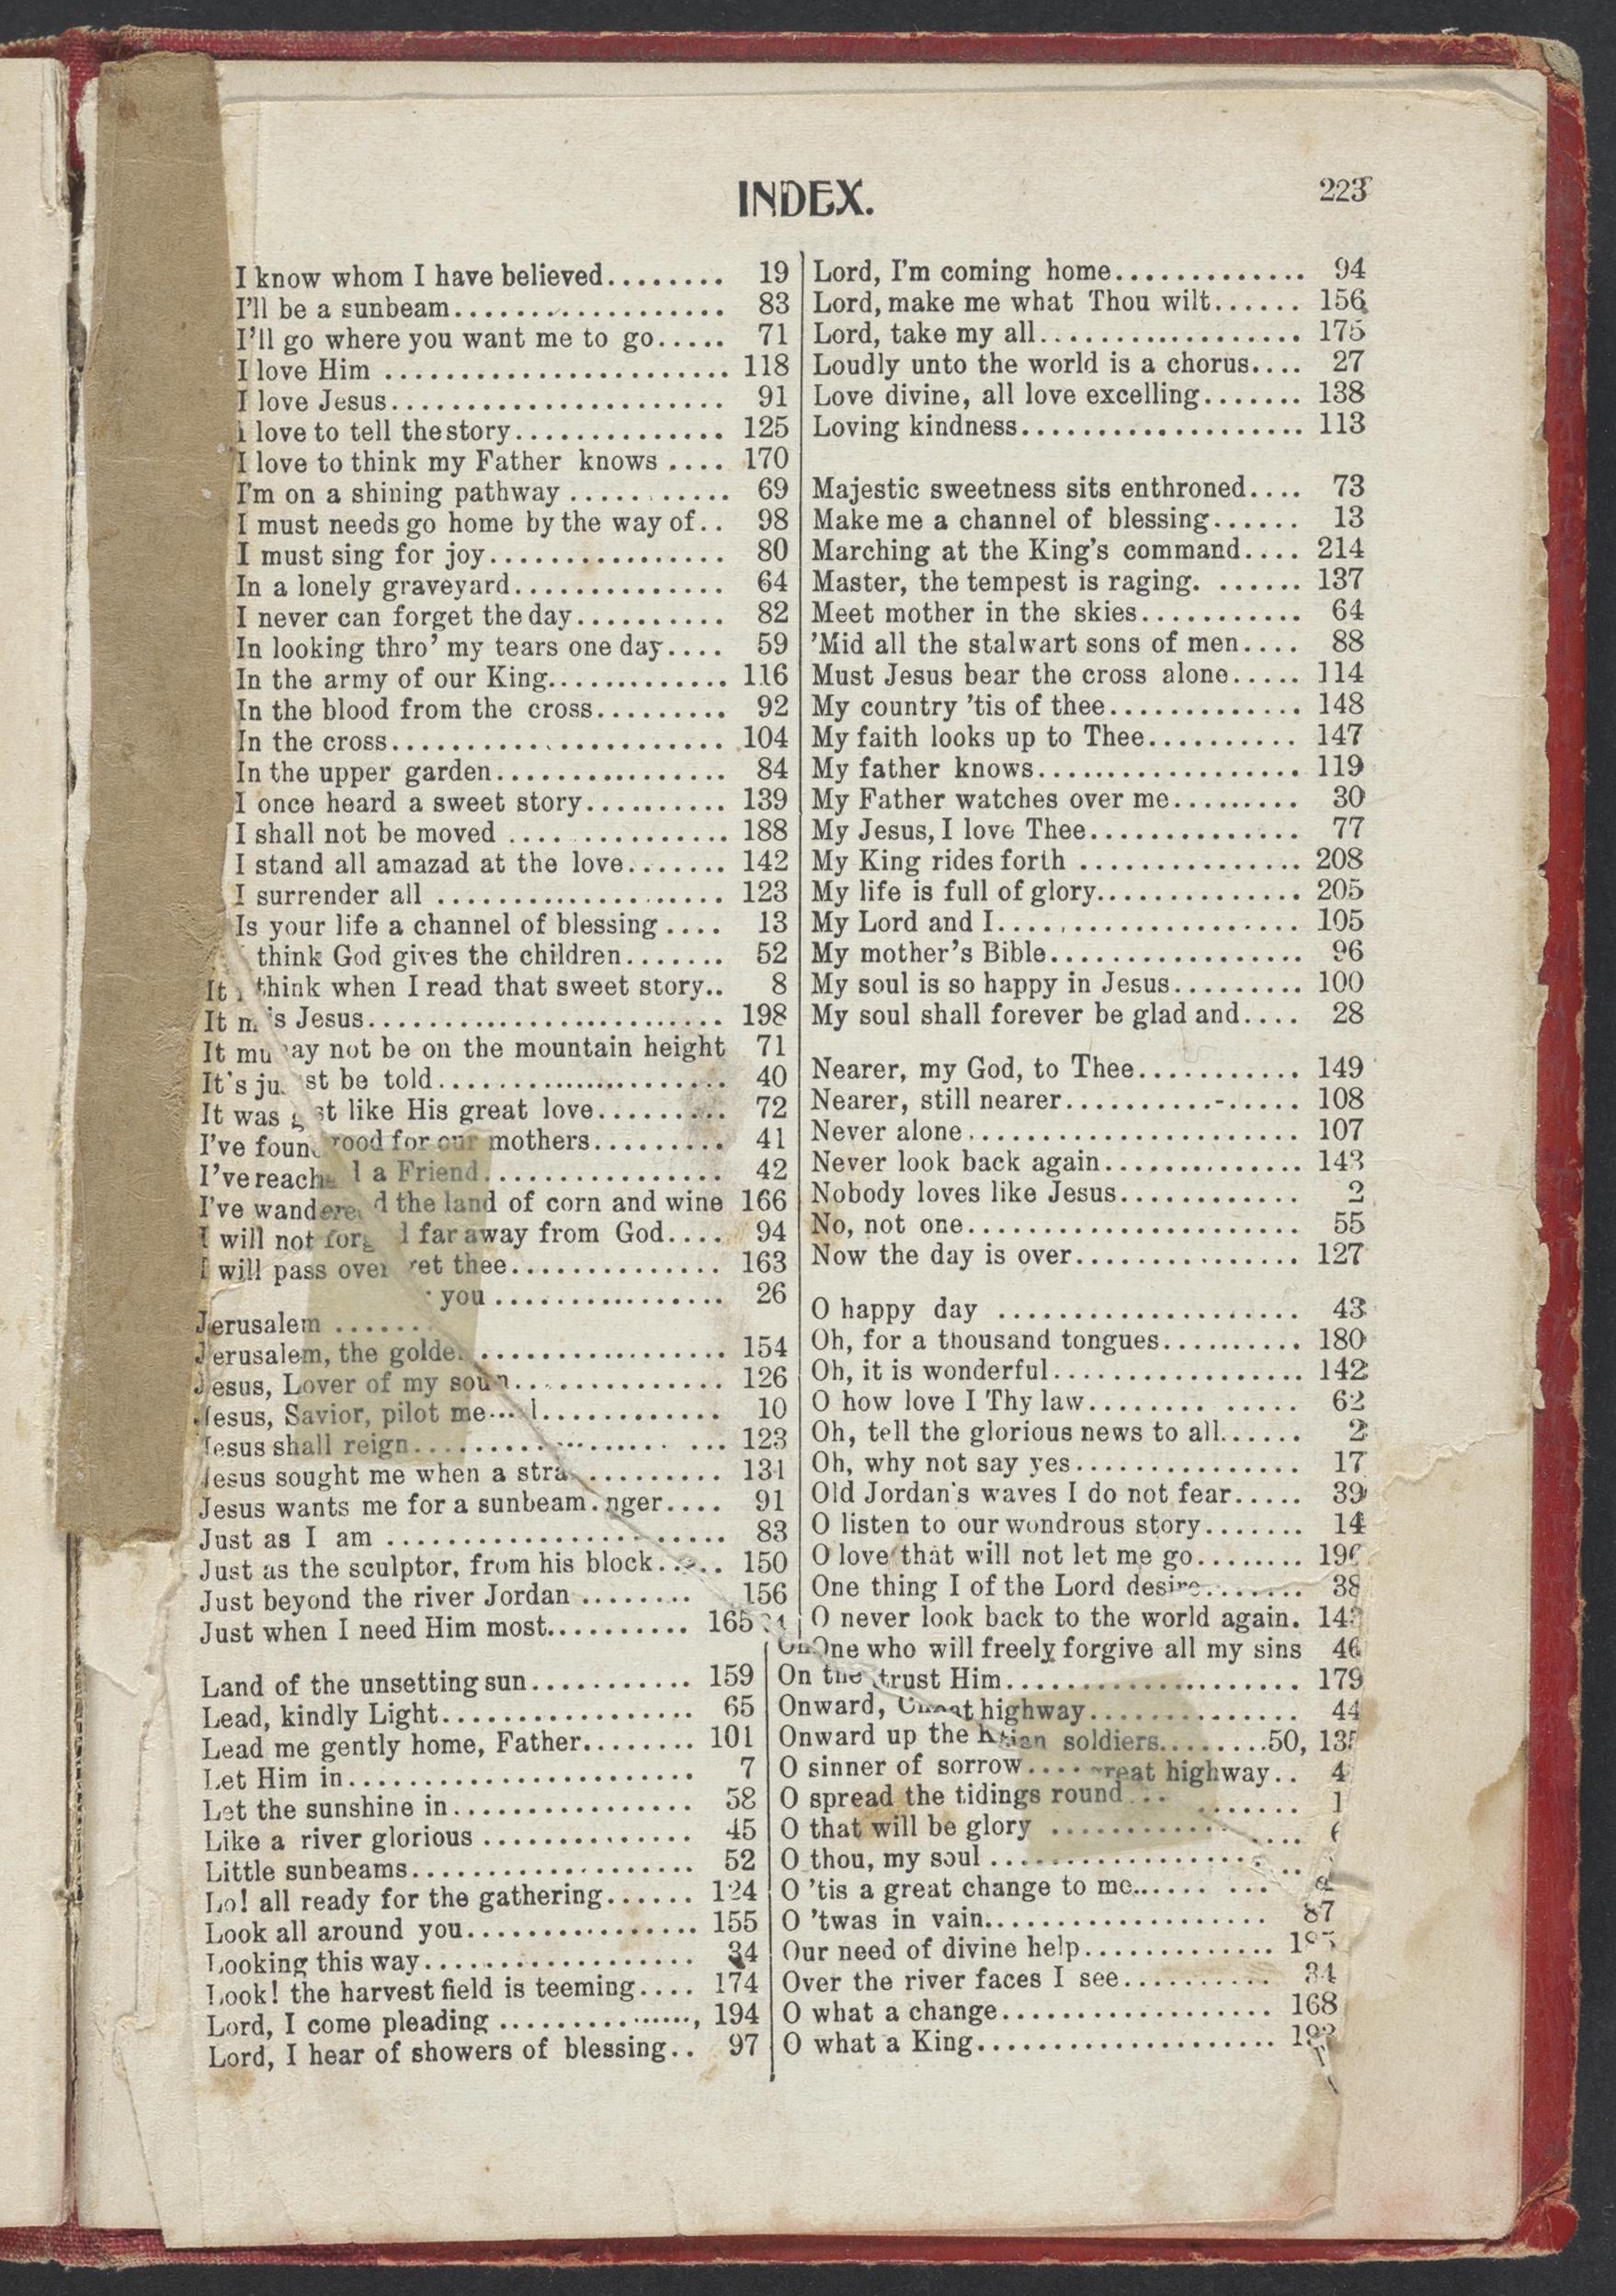 INDEX.
223
I know whom I have believed........ 19
I'll be a sunbeam................... 83
I'll go where you want me to go..... 71
I love Him ....................... 118
I love Jesus...................... 91
I love to tell the story.............. 125
I love to think my Father knows .... 170
I'm on a shining pathway ........... 69
I must needs go home by the way of.. 98
I must sing for joy................ 80
In a lonely graveyard.............. 64
I never can forget the day.......... 82
In looking thro' my tears one day.... 59
In the army of our King............. 116
In the blood from the cross......... 92
In the cross...................... 104
In the upper garden................ 84
I once heard a sweet story.......... 139
I shall not be moved .... .......... 188
I stand all amazad at the love....... 142
I surrender all ................... 123
Is your life a channel of blessing .... 13
think God gives the children....... 52
It think when I read that sweet story.. 8
It m is Jesus........................ 198
It mu ay not be on the mountain height 71
It's ju st be told................... 40
It was g st like His great love......... 72
I've foun ood for our mothers......... 41
I've reach d a Friend................ 42
I've wandered d the land of corn and wine 166
I will not forg d far away from God.... 94
I will pass over et thee.............. 163
you ................ 26
Jerusalem ......
Jerusalem, the golde ................. 154
Jesus, Lover of my sou n.............. 126
Jesus, Savior, pilot me... l............ 10
Jesus shall reign.................... 123
Jesus sought me when a stra ......... 131
Jesus wants me for a sunbeam. nger.... 91
Just as I am ....................... 83
Just as the sculptor, from his block..... 150
Just beyond the river Jordan ....... 156
Just when I need Him most.......... 165
Land of the unsetting sun........... 159
Lead, kindly Light................. 65
Lead me gently home, Father........ 101
Let Him in....................... 7
Let the sunshine in................ 58
Like a river glorious .............. 45
Little sunbeams................... 52
Lo! all ready for the gathering...... 124
Look all around you................ 155
Looking this way.................. 34
Look! the harvest field is teeming.... 174
Lord, I come pleading ..............., 194
Lord, I hear of showers of blessing.. 97
Lord, I'm coming home............. 94
Lord, make me what Thou wilt...... 156
Lord, take my all.................. 175
Loudly unto the world is a chorus.... 27
Love divine, all love excelling....... 138
Loving kindness................... 113
Majestic sweetness sits enthroned.... 73
Make me a channel of blessing...... 13
Marching at the King's command.... 214
Master, the tempest is raging. ...... 137
Meet mother in the skies........... 64
'Mid all the stalwart sons of men.... 88
Must Jesus bear the cross alone..... 114
My country 'tis of thee............. 148
My faith looks up to Thee.......... 147
My father knows.................. 119
My Father watches over me......... 30
My Jesus, I love Thee.............. 77
My King rides forth ............... 208
My life is full of glory.............. 205
My Lord and I.................... 105
My mother's Bible................. 96
My soul is so happy in Jesus......... 100
My soul shall forever be glad and.... 28
Nearer, my God, to Thee........... 149
Nearer, still nearer..........-..... 108
Never alone...................... 107
Never look back again.............. 143
Nobody loves like Jesus............ 2
No, not one...................... 55
Now the day is over............... 127
O happy day .................... 43
Oh, for a thousand tongues.......... 180
Oh, it is wonderful................. 142
O how love I Thy law........ ..... 62
Oh, tell the glorious news to all...... 2
Oh, why not say yes............... 17
Old Jordan's waves I do not fear..... 39
O listen to our wondrous story....... 14
O love that will not let me go........ 19
One thing I of the Lord desire....... 38
O never look back to the world again. 14
One who will freely forgive all my sins 46
On the trust Him.................... 179
Onward, at highway.............. 44
Onward up the tian soldiers.........50, 13
O sinner of sorrow.... reat highway.. 4
O spread the tidings round... ....... 1
O that will be glory .............
O thou, my soul ..................
O 'tis a great change to me...... ...
O 'twas in vain................... 87
Our need of divine help............. 1
Over the river faces I see........... 34
O what a change.................. 168
O what a King.................... 19